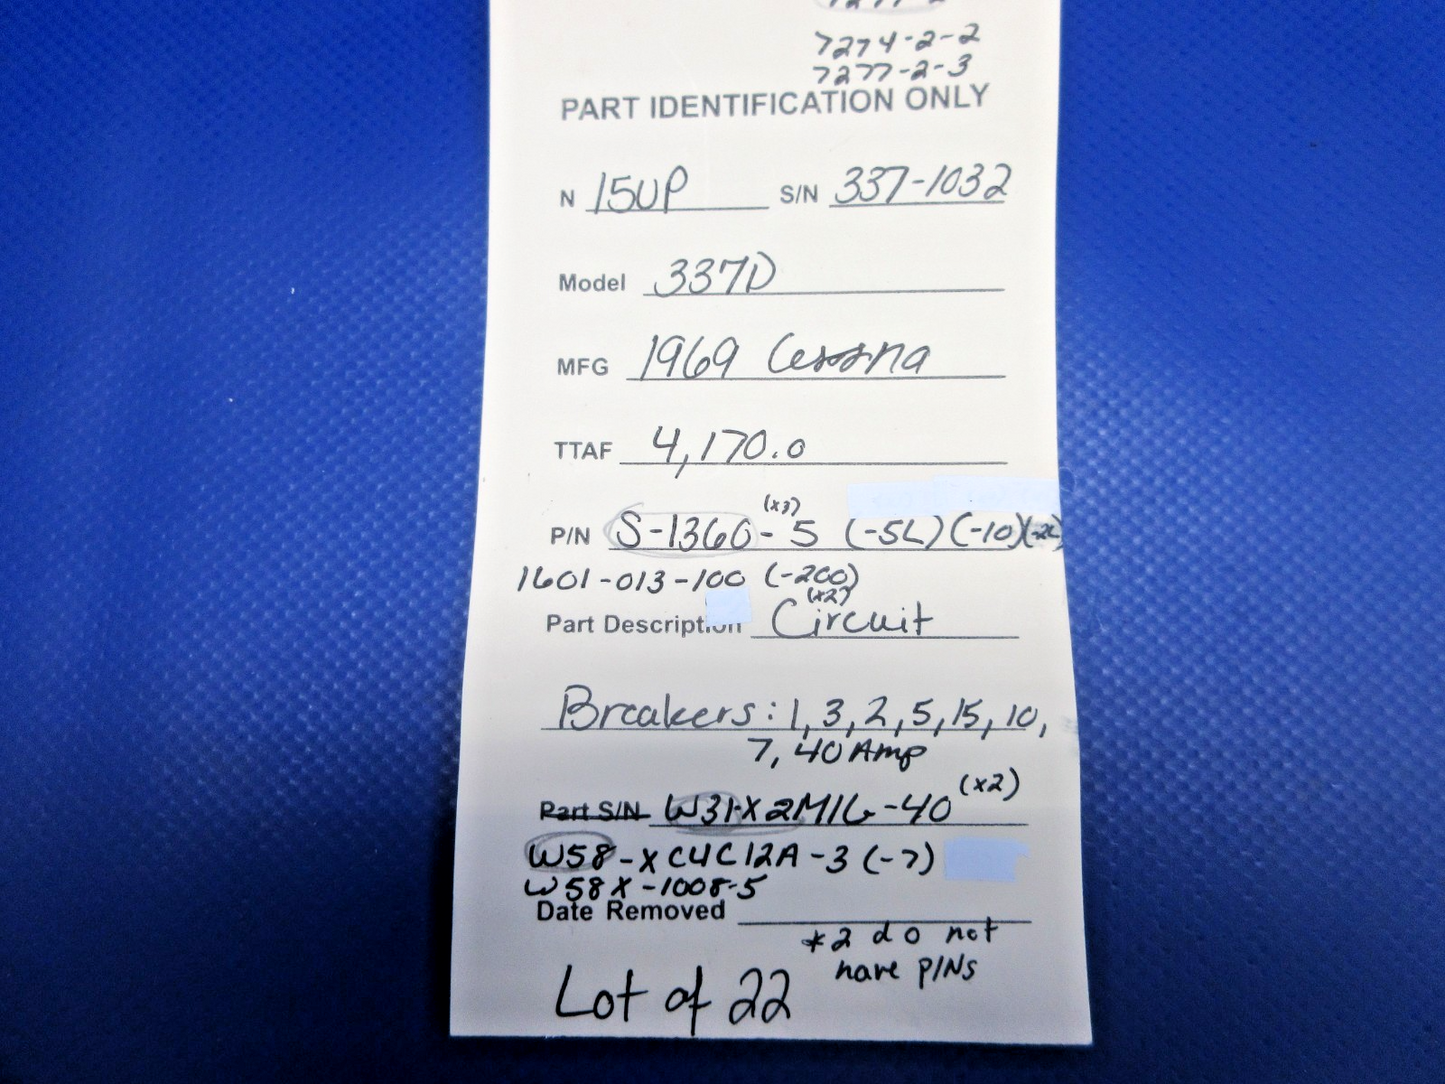 7274-2-2
7277-2-3
PART IDENTIFICATION ONLY
N 15UP S/N 337-1032
Model 337D
MFG 1969 Cessna
TTAF 4,170.0
(x3)
P/N S-1360-5 (-5L) (-10)(-2L)
1601-013-100 (-200)
(x2)
Part Description Circuit
Breakers: 1, 3, 2, 5, 15, 10,
7, 40 Amp
Part S/N W31-X2M1G-40 (x2)
W58-XC4C12A-3 (-7)
W58X-1008-5
Date Removed
*2 do not
have P/Ns
Lot of 22